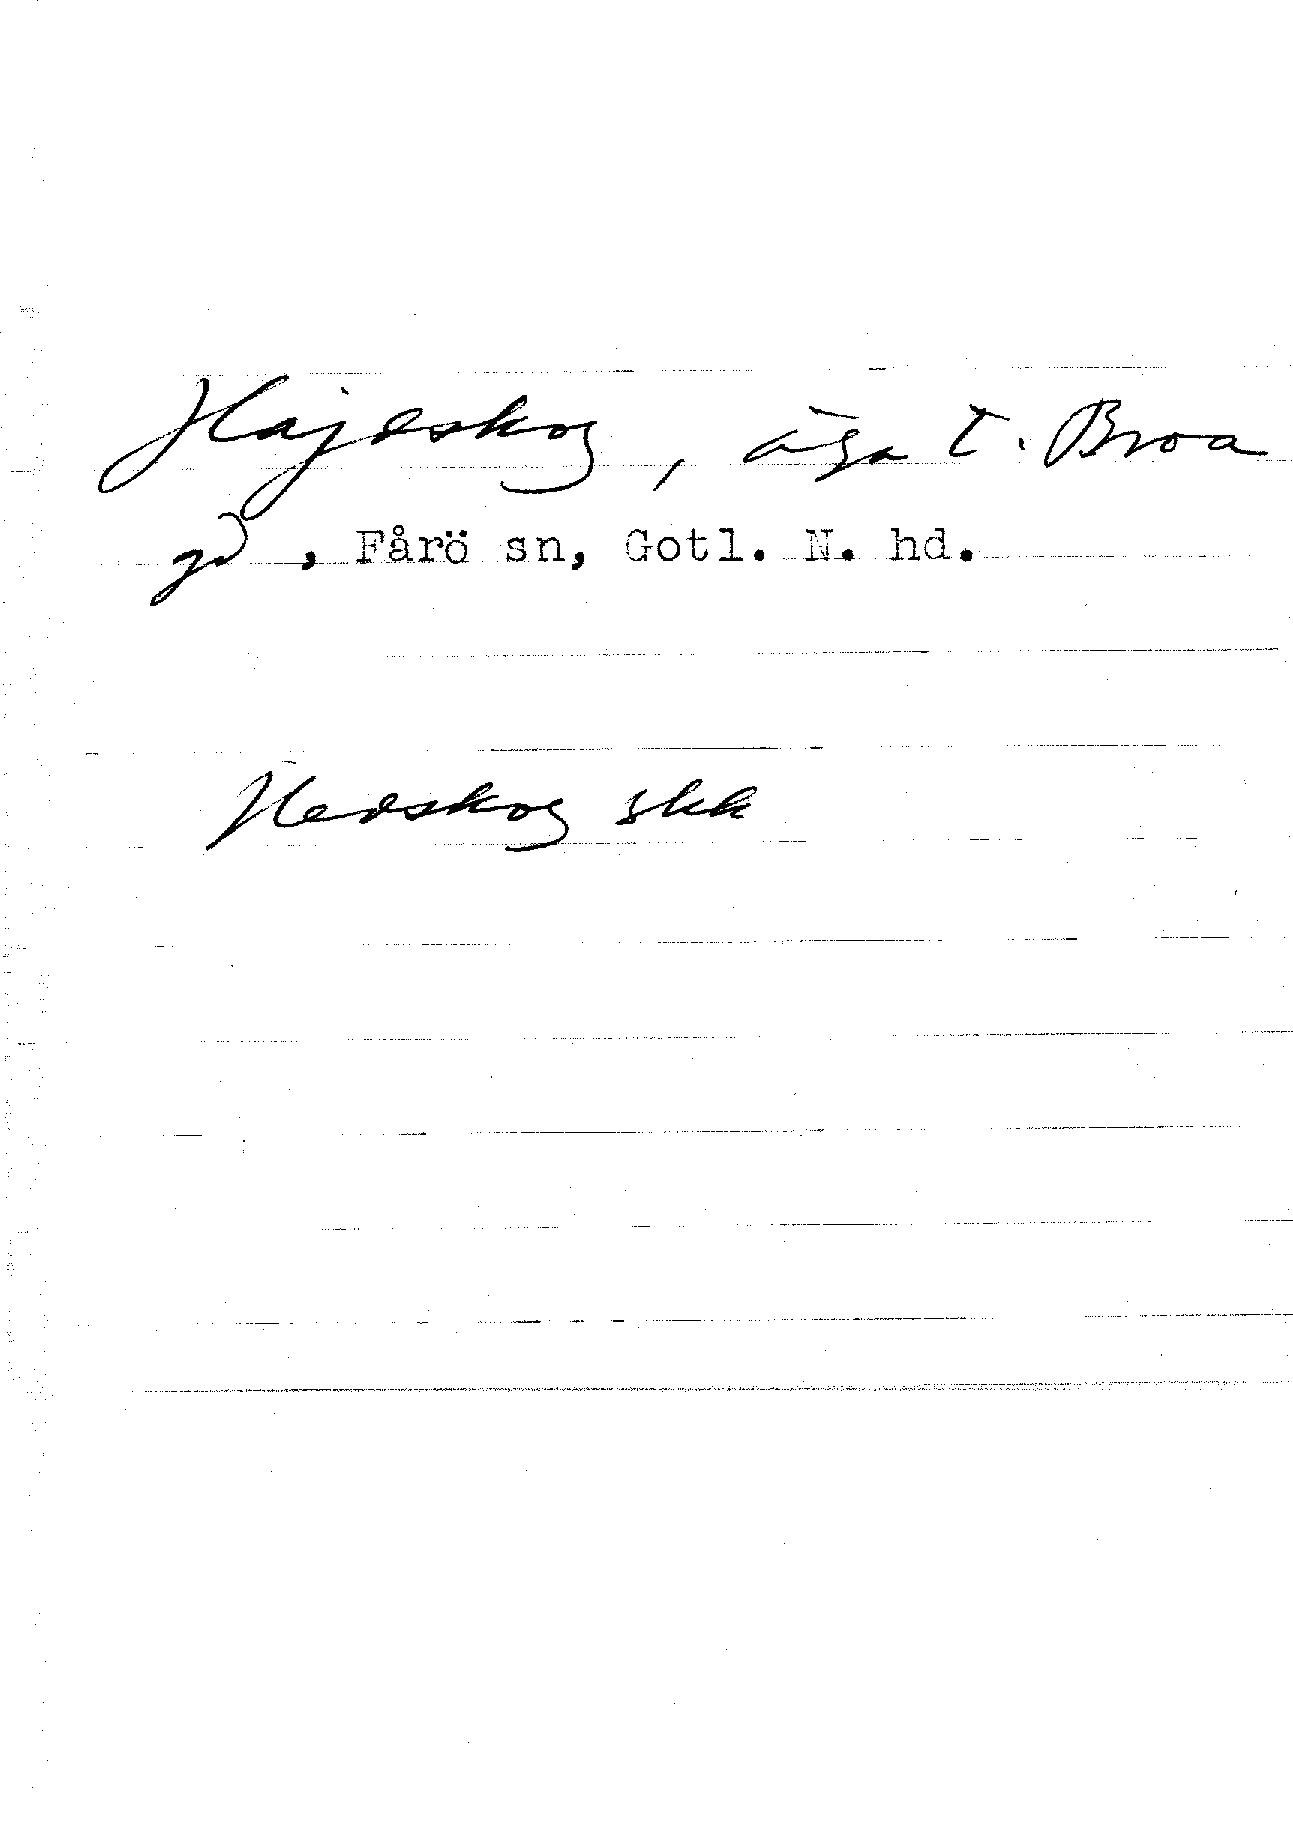 Hajdskog, äga t. Broa
gd , Fårö sn, Gotl. N. hd.
Hedskog skk